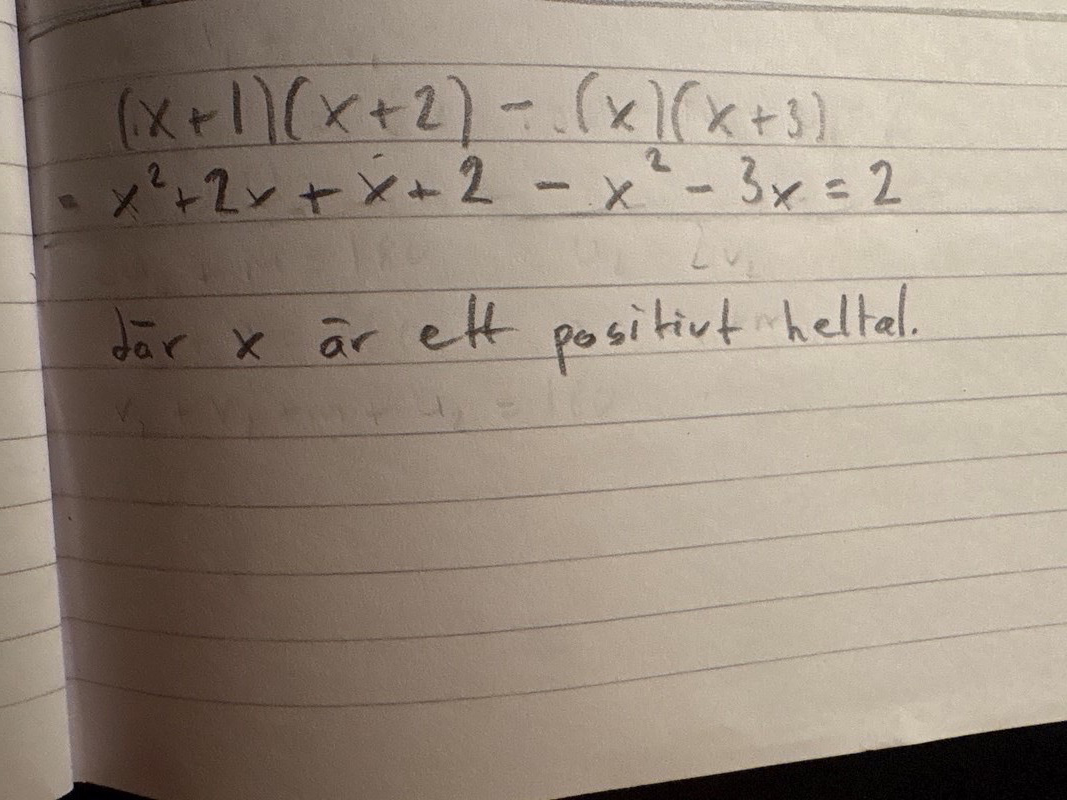 (x+1)(x+2) - (x)(x+3)
= x²+2x + x + 2 - x² - 3x = 2
där x är ett positivt heltal.